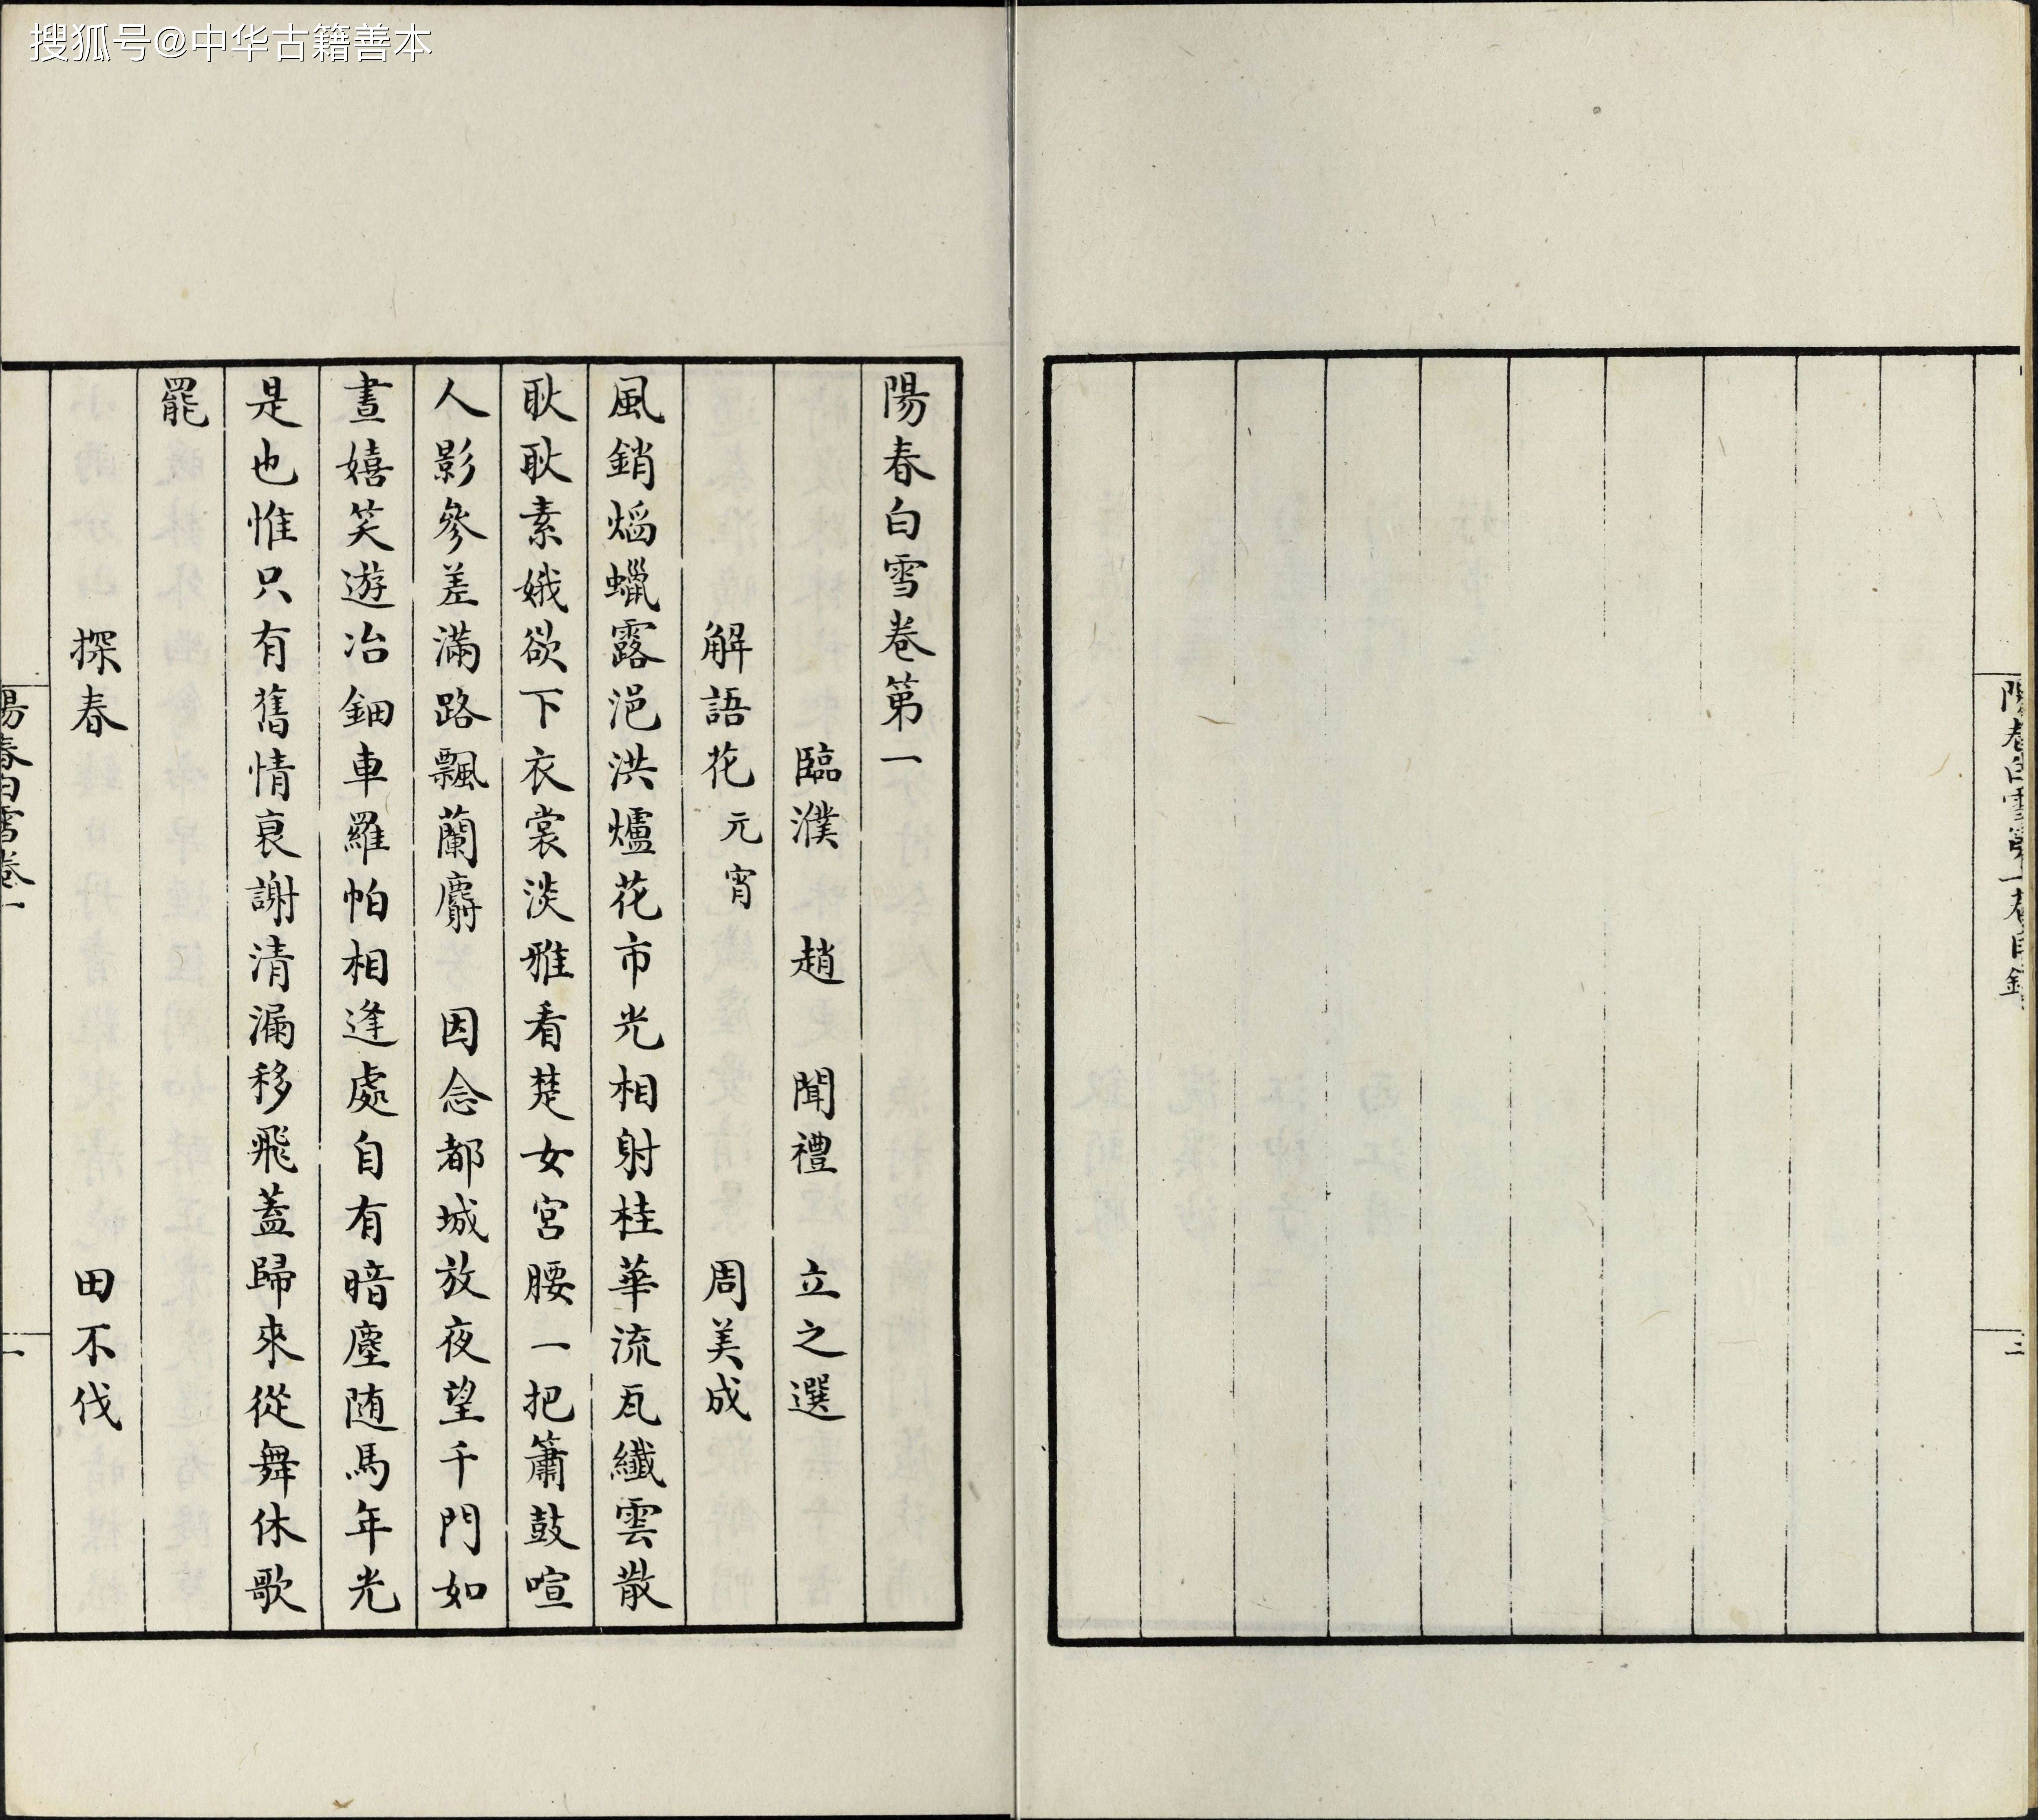 搜狐号@中华古籍善本
陽春白雪第一卷目錄
二
陽春白雪卷第一
臨濮 趙 聞禮 立之選
解語花 元宵 周美成
風銷熖蠟露浥洪爐花市光相射桂華流瓦纖雲散
耿耿素娥欲下衣裳淡雅看楚女宮腰一把簫鼓喧
人影參差滿路飄蘭麝 因念都城放夜望千門如
晝嬉笑遊冶鈿車羅帕相逢處自有暗塵随馬年光
是也惟只有舊情衰謝清漏移飛蓋歸來從舞休歌
罷
探春 田不伐
陽春白雪卷一
一